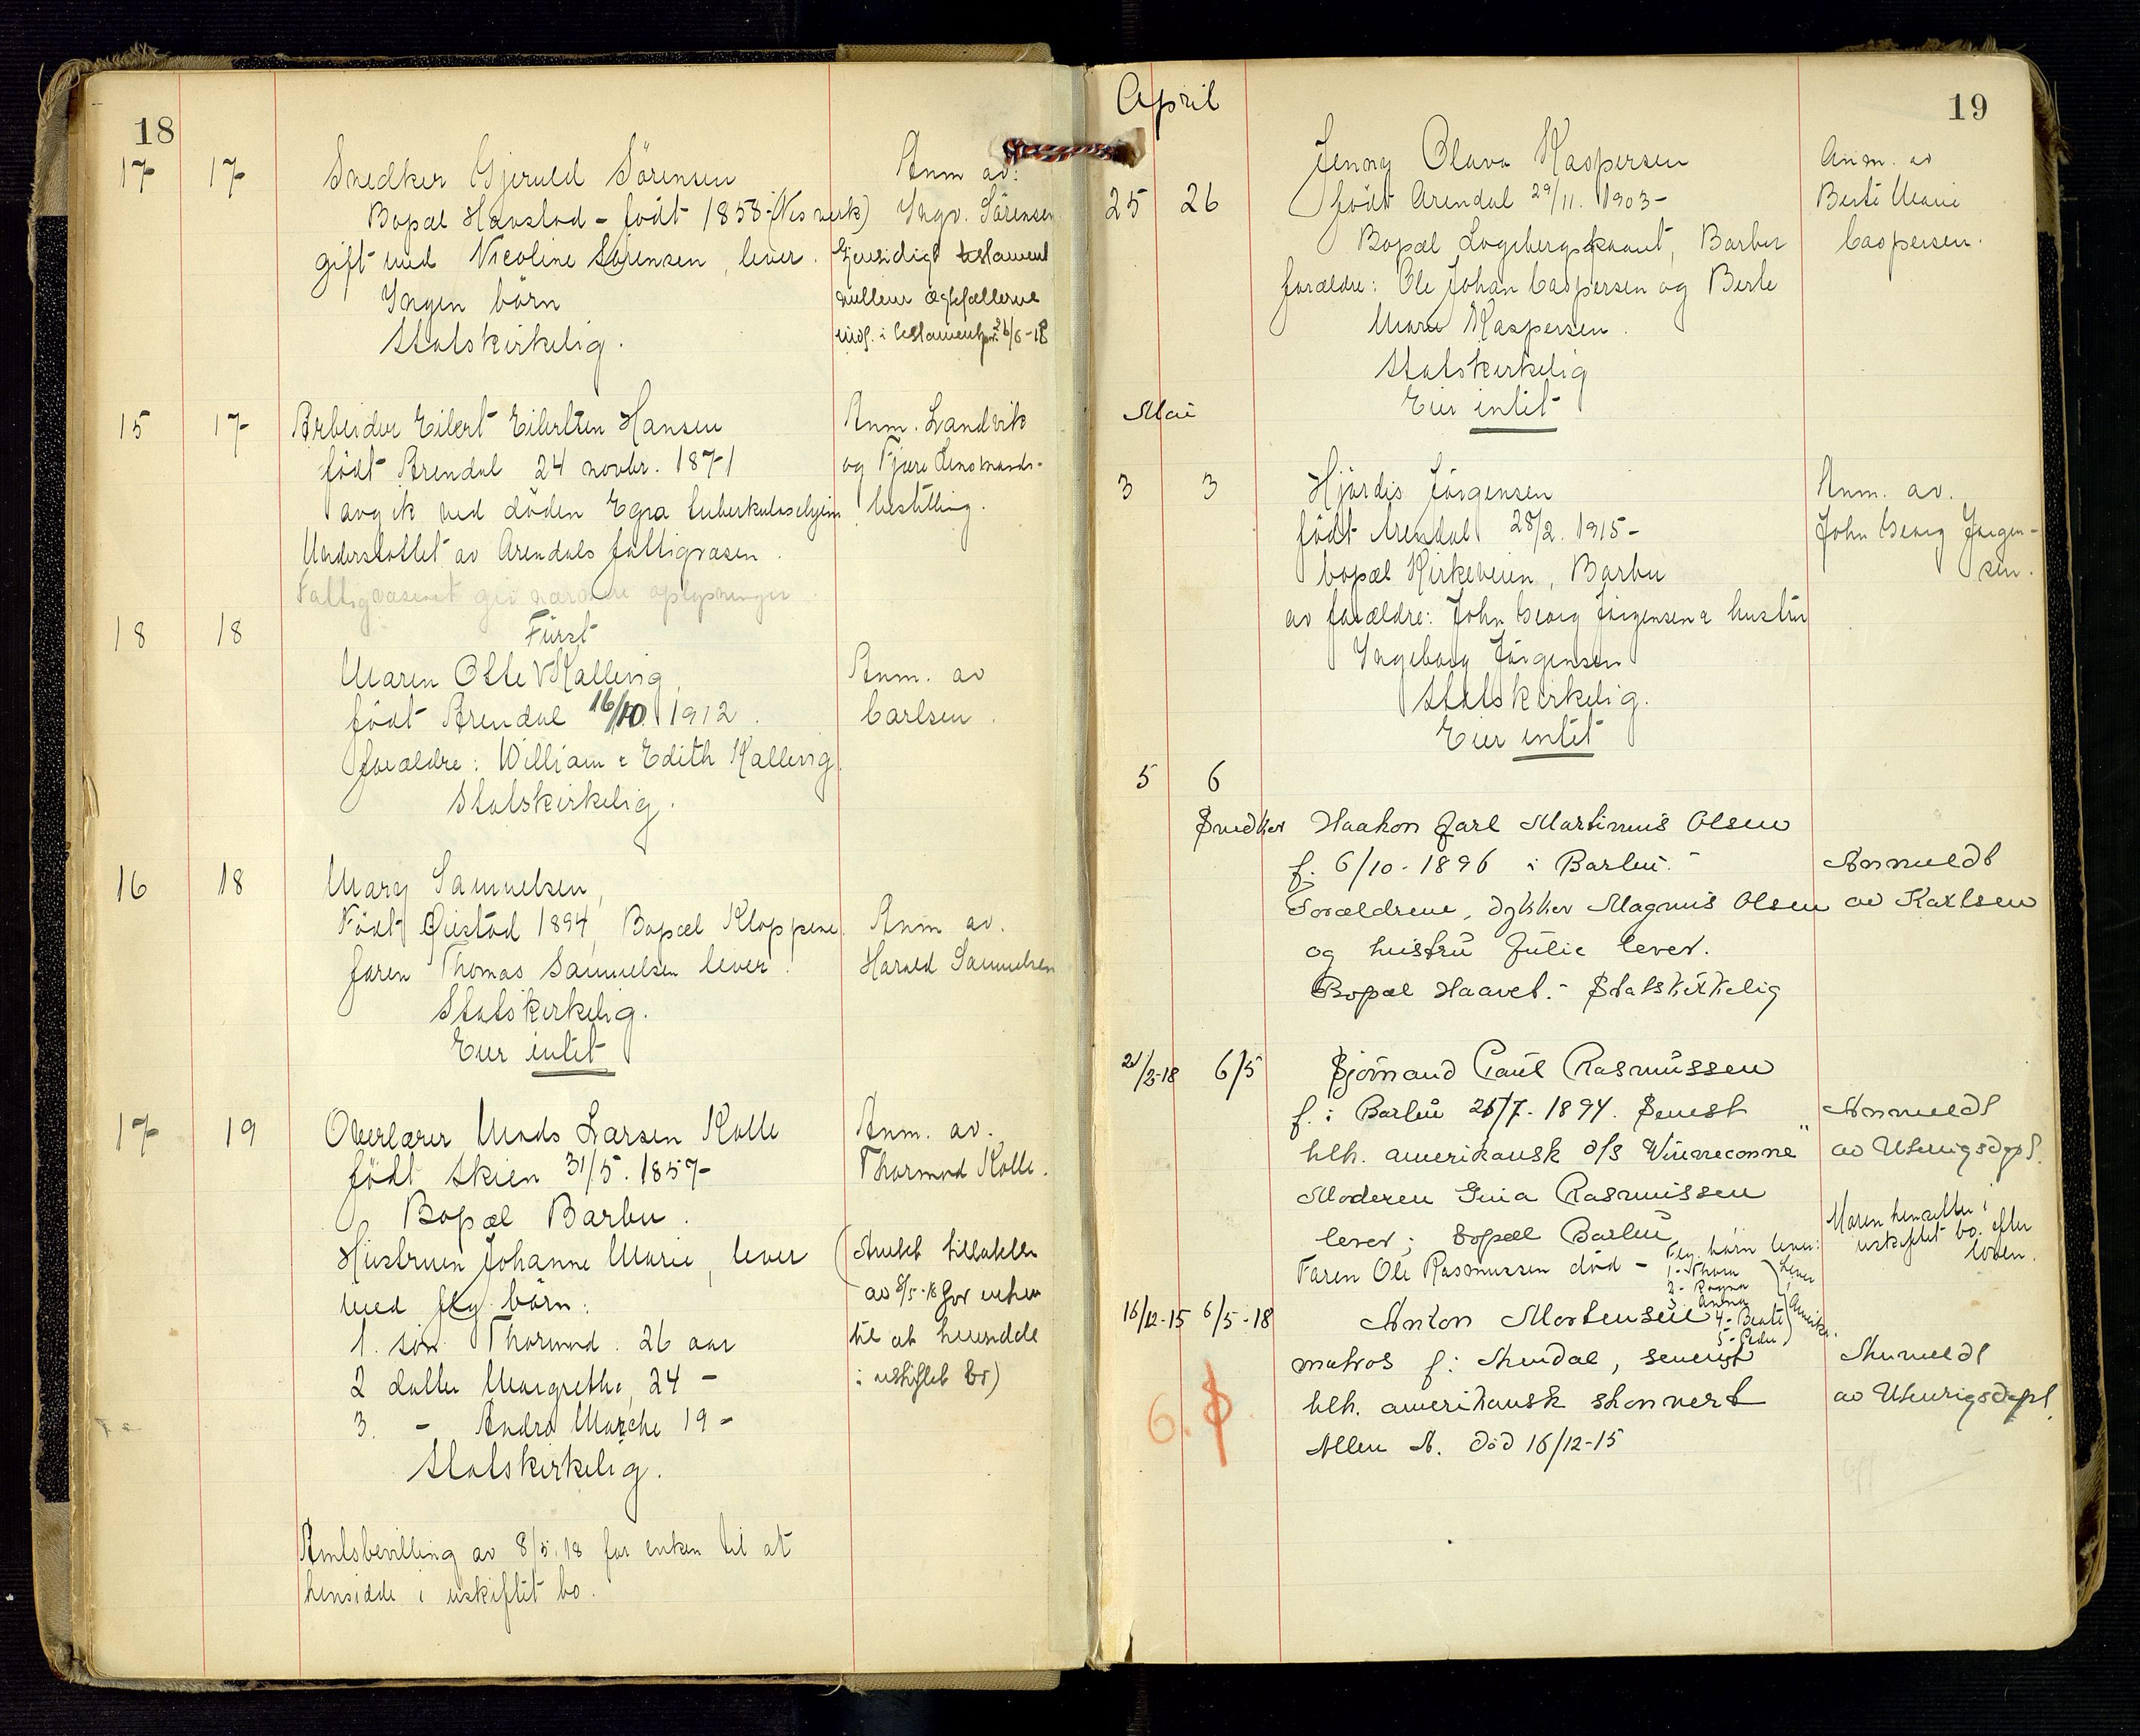 18
17 17 Snedker Gjeruld Sörensen
Anm av:
Bopæl Havstad - födt 1858 - (Nes verk)
Ingv. Sörensen
gift med Nicoline Sörensen, lever.
Gjensidigt testament
Ingen börn
mellem ægtefællerne
Statskirkelig.
indf. i testamentpr. 26/6-18
15 17 Arbeider Eilert Eilertsen Hansen
Anm. Landvik
födt Arendal 24 novbr. 1871
og Fjære Lensmands-
avgik ved döden Egra tuberkulosehjem
bestilling.
Understöttet av Arendals fattigvæsen.
Fattigvæsenet gir nærmere oplysninger.
18 18 Fürst
Maren Otte Kallevig,
Anm. av
födt Arendal 16/10 1912.
Carlsen.
forældre: William & Edith Kallevig.
Statskirkelig.
16 18 Mary Samuelsen,
Född Öiestad 1894, Bopæl Kloppene.
Anm av.
faren Thomas Samuelsen lever.
Harald Samuelsen
Statskirkelig.
Eier intet
17 19 Overlærer Mads Larsen Kolle
Anm. av.
födt Skien 31/5. 1857
Thormod Kolle.
Bopæl Barbu.
Hustruen Johanne Marie, lever
(Amtets tilladelse
med flg. börn:
av 8/5-18 for enken
1. sön Thormod. 26 aar
til at hensidde
2 datter Margrethe, 24 -
i uskiftet bo)
3. - Andra Marche 19 -
Statskirkelig.
Amtsbevilling av 8/5.18 for enken til at
hensidde i uskiftet bo.
April
19
Jenny Olava Kaspersen
Anm. av
25 26 födt Arendal 29/11. 1903 -
Berte Marie
Bopæl Logebergskaaret, Barbu
Caspersen.
forældre: Ole Johan Caspersen og Berte
Marie Kaspersen.
Statskirkelig
Eier intet
Mai
3 3 Hjördis Jörgensen
Anm. av.
födt Arendal 28/2. 1915 -
John Georg Jörgen-
bopæl Kirkeveien, Barbu
sen.
av forældre: John Georg Jörgensen & hustru
Ingeborg Jörgensen
Statskirkelig.
Eier intet
5 6
Snedker Haakon Jarl Martinius Olsen
f. 6/10 - 1896 i Barbu. -
Anmeldt
Forældrene, dykker Magnus Olsen
av Karlsen
og hustru Julie lever.
Bopæl Haavet. - Statskirkelig
2/3-18 6/5 Sjömand Paul Rasmussen
f. i Barbu 25/7 - 1894. Senest
Anmeldt
hlh. amerikansk d/s "Winneconne"
av Utenrigsdept.
Moderen Gina Rasmussen
lever; bopæl Barbu
Moren hensitter i
uskiftet bo. efter
loven.
Faren Ole Rasmussen död - Flg. börn lever:
1 - Thora
2 - Ragna
3 Anna
4 - Beate
5 - Peder
lever
i
Amerika.
16/12-15 6/5-18 Anton Mortensen
matros f: Arendal, senest
Anmeldt
hlh. amerikansk skonnert
av Utenrigsdept.
6. S
Allen A. död 16/12-15